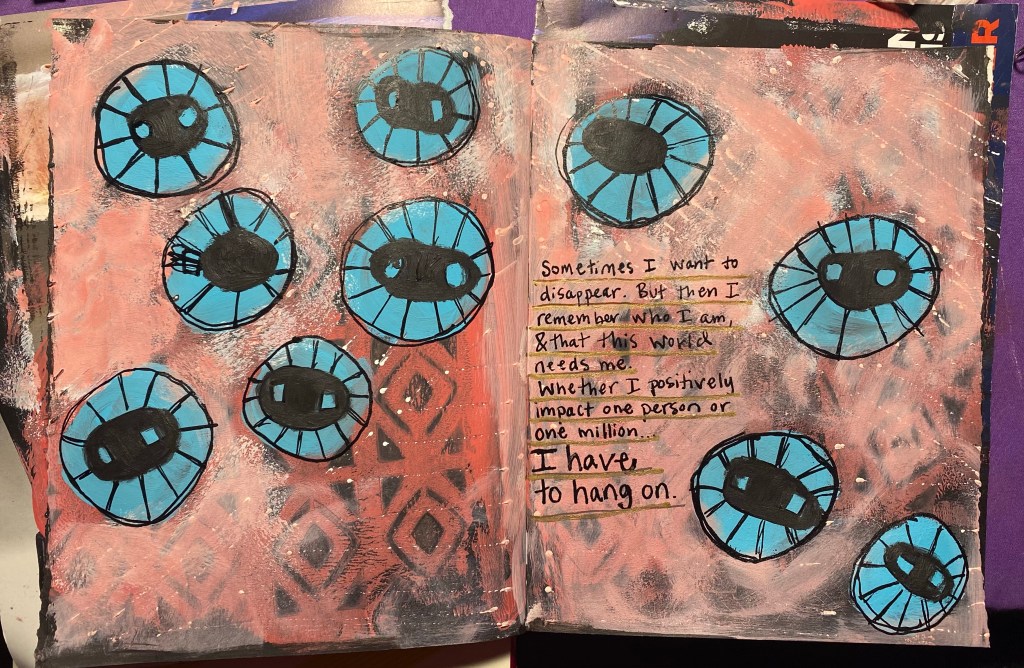 Sometimes I want to
disappear. But then I
remember who I am,
& that this world
needs me.
Whether I positively
impact one person or
one million...
I have
to hang on.
R